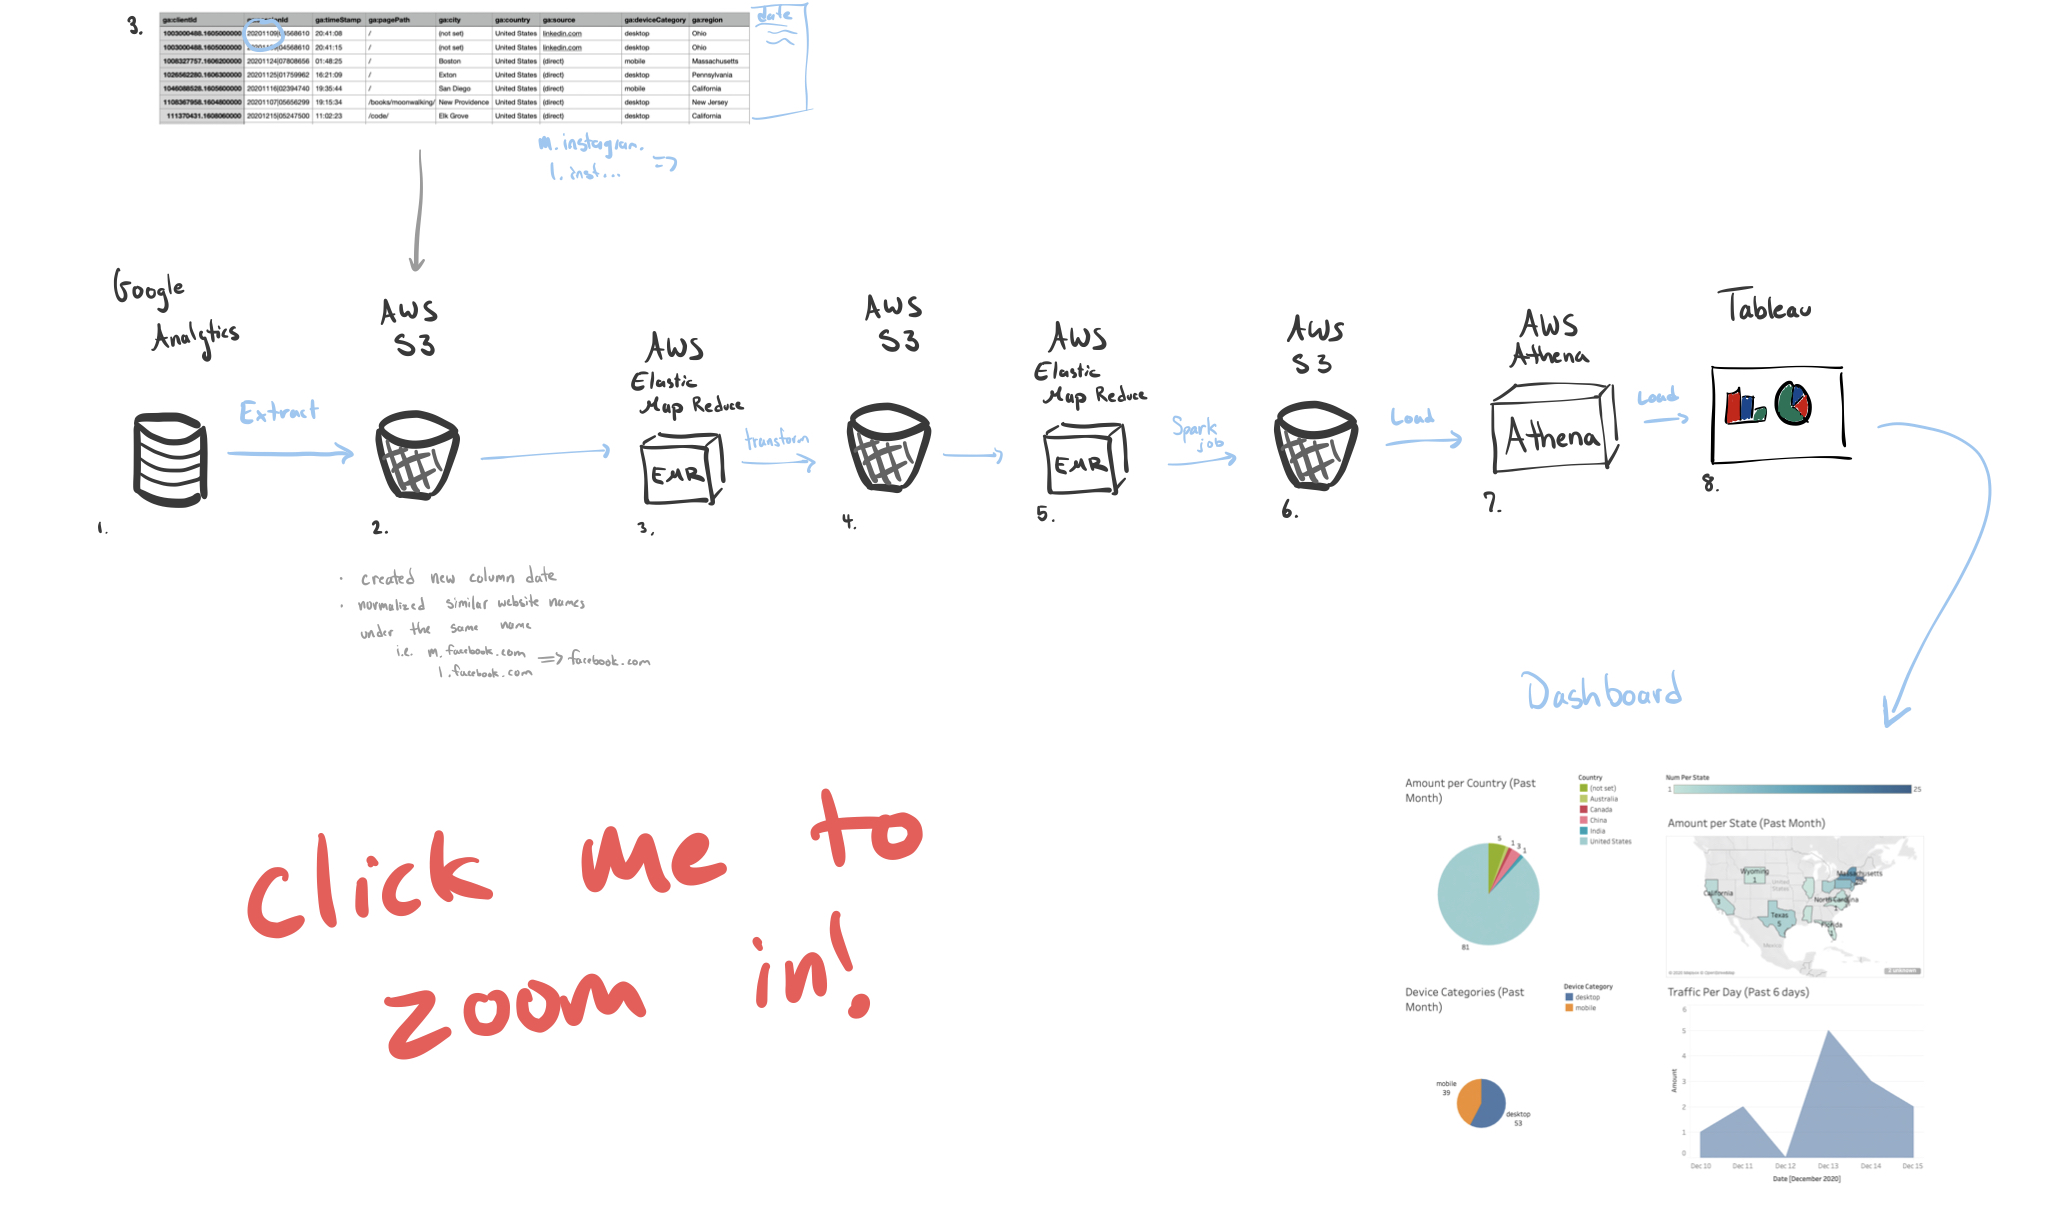 3.
ga:clientId ga:timeStamp ga:pagePath ga:city ga:country ga:source ga:deviceCategory ga:region
1003000488.1605000000 20201109 04568610 20:41:08 / (not set) United States linkedin.com desktop Ohio
1003000488.1605000000 04568610 20:41:15 / (not set) United States linkedin.com desktop Ohio
1008327757.1606200000 20201124|07808656 01:48:25 / Boston United States (direct) mobile Massachusetts
1026562280.1606300000 20201125|01759962 16:21:09 / Exton United States (direct) desktop Pennsylvania
1046088528.1605600000 20201116|02394740 19:35:44 / San Diego United States (direct) mobile California
1108367958.1604800000 20201107|05656299 19:15:34 /books/moonwalking/ New Providence United States (direct) desktop New Jersey
111370431.1608060000 20201215|05247500 11:02:23 /code/ Elk Grove United States (direct) desktop California
date
m.instagram. =>
l.inst...
Google
Analytics
Extract
1.
AWS
S3
2.
AWS
Elastic
Map Reduce
EMR
3.
transform
AWS
S3
4.
AWS
Elastic
Map Reduce
EMR
5.
Spark
job
AWS
S3
6.
Load
AWS
Athena
Athena
7.
Load
Tableau
8.
· created new column date
· normalized similar website names
under the same name
i.e. m.facebook.com => facebook.com
l.facebook.com
click me to
zoom in!
Dashboard
Amount per Country (Past
Month)
Country
(not set)
Australia
Canada
China
India
United States
5
1
3
1
81
Num Per State
1 25
Amount per State (Past Month)
Wyoming
1
United
States
Massachusetts
California
3
North Carolina
1
Texas
5
Florida
Mexico
© 2020 Mapbox © OpenStreetMap
2 unknown
Device Categories (Past
Month)
Device Category
desktop
mobile
mobile
39
desktop
53
Traffic Per Day (Past 6 days)
6
5
4
3
2
1
0
Amount
Dec 10 Dec 11 Dec 12 Dec 13 Dec 14 Dec 15
Date [December 2020]